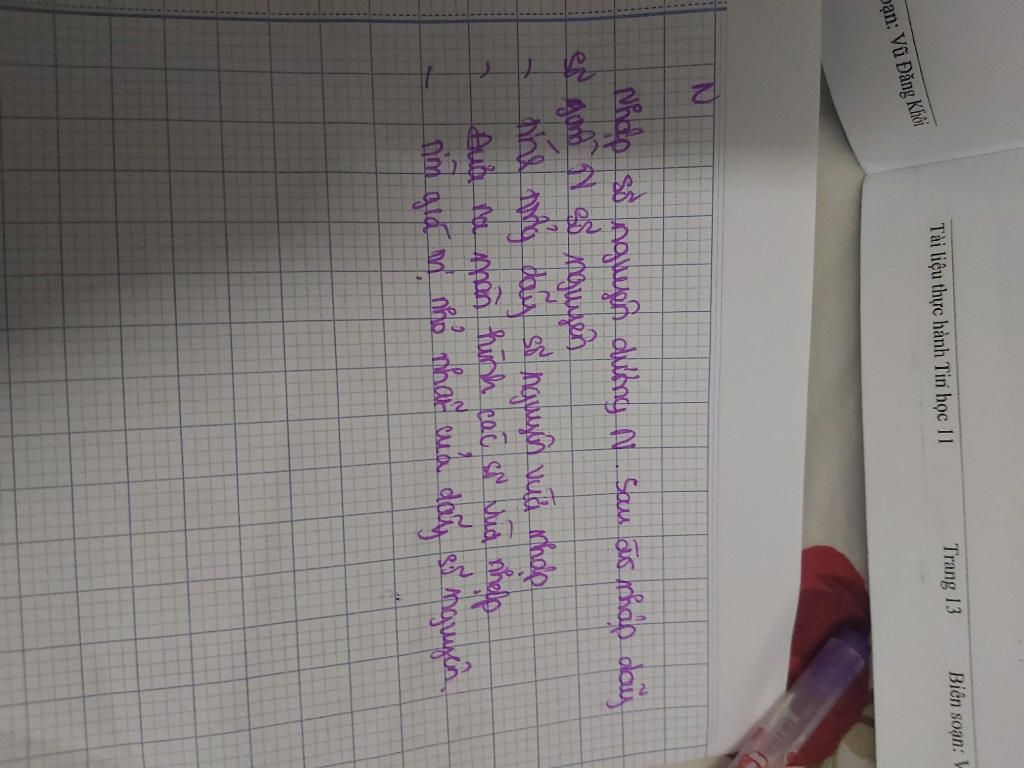 N
Nhập số nguyên dương N. Sau đó nhập dãy
số gồm N số nguyên
- tính tổng dãy số nguyên vừa nhập
- Đưa ra màn hình các số vừa nhập
- Tìm giá trị nhỏ nhất của dãy số nguyên.
oạn: Vũ Đăng Khôi
Tài liệu thực hành Tin học 11 Trang 13 Biên soạn: V